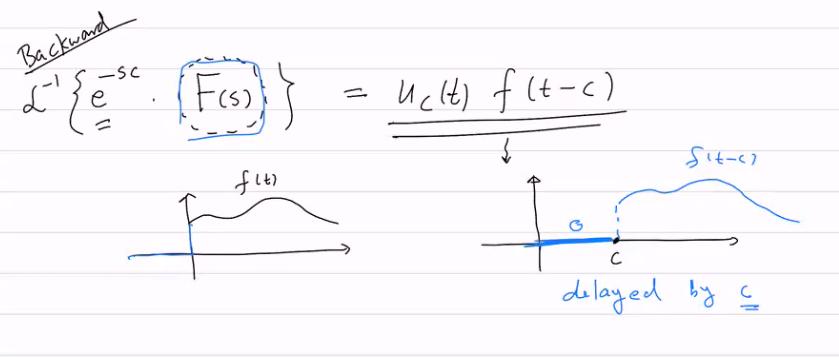 Backward
ℒ⁻¹{e^{-sc} · F(s)} = u_c(t) f(t-c)
f(t)
f(t-c)
0
c
delayed by c